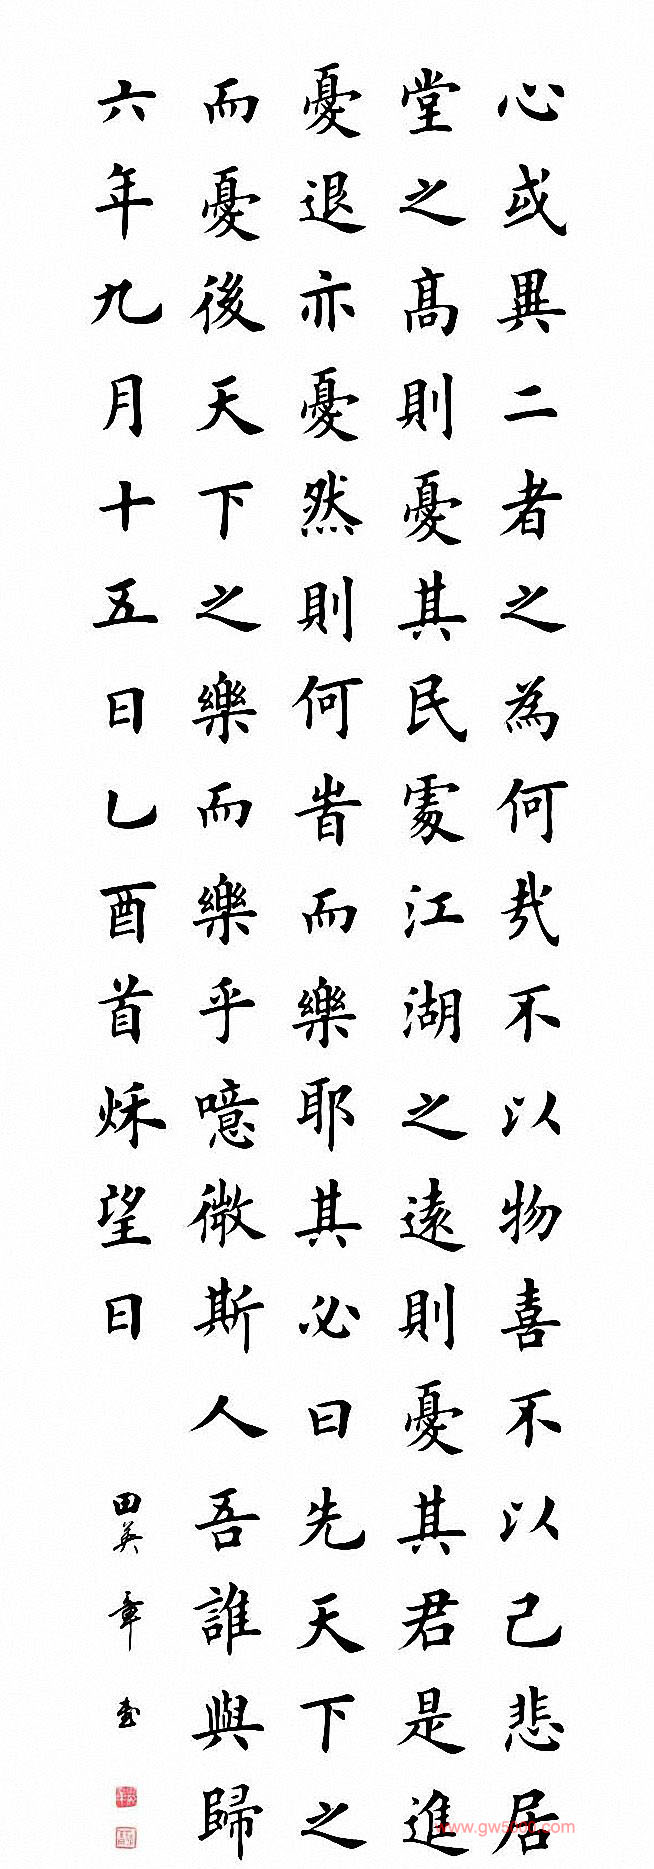 心或異二者之為何哉不以物喜不以己悲居
堂之髙則憂其民處江湖之遠則憂其君是進
憂退亦憂然則何旹而樂耶其必曰先天下之
而憂後天下之樂而樂乎噫微斯人吾誰與歸
六年九月十五日乙酉首秌望日
田英章书
www.gw5000.com